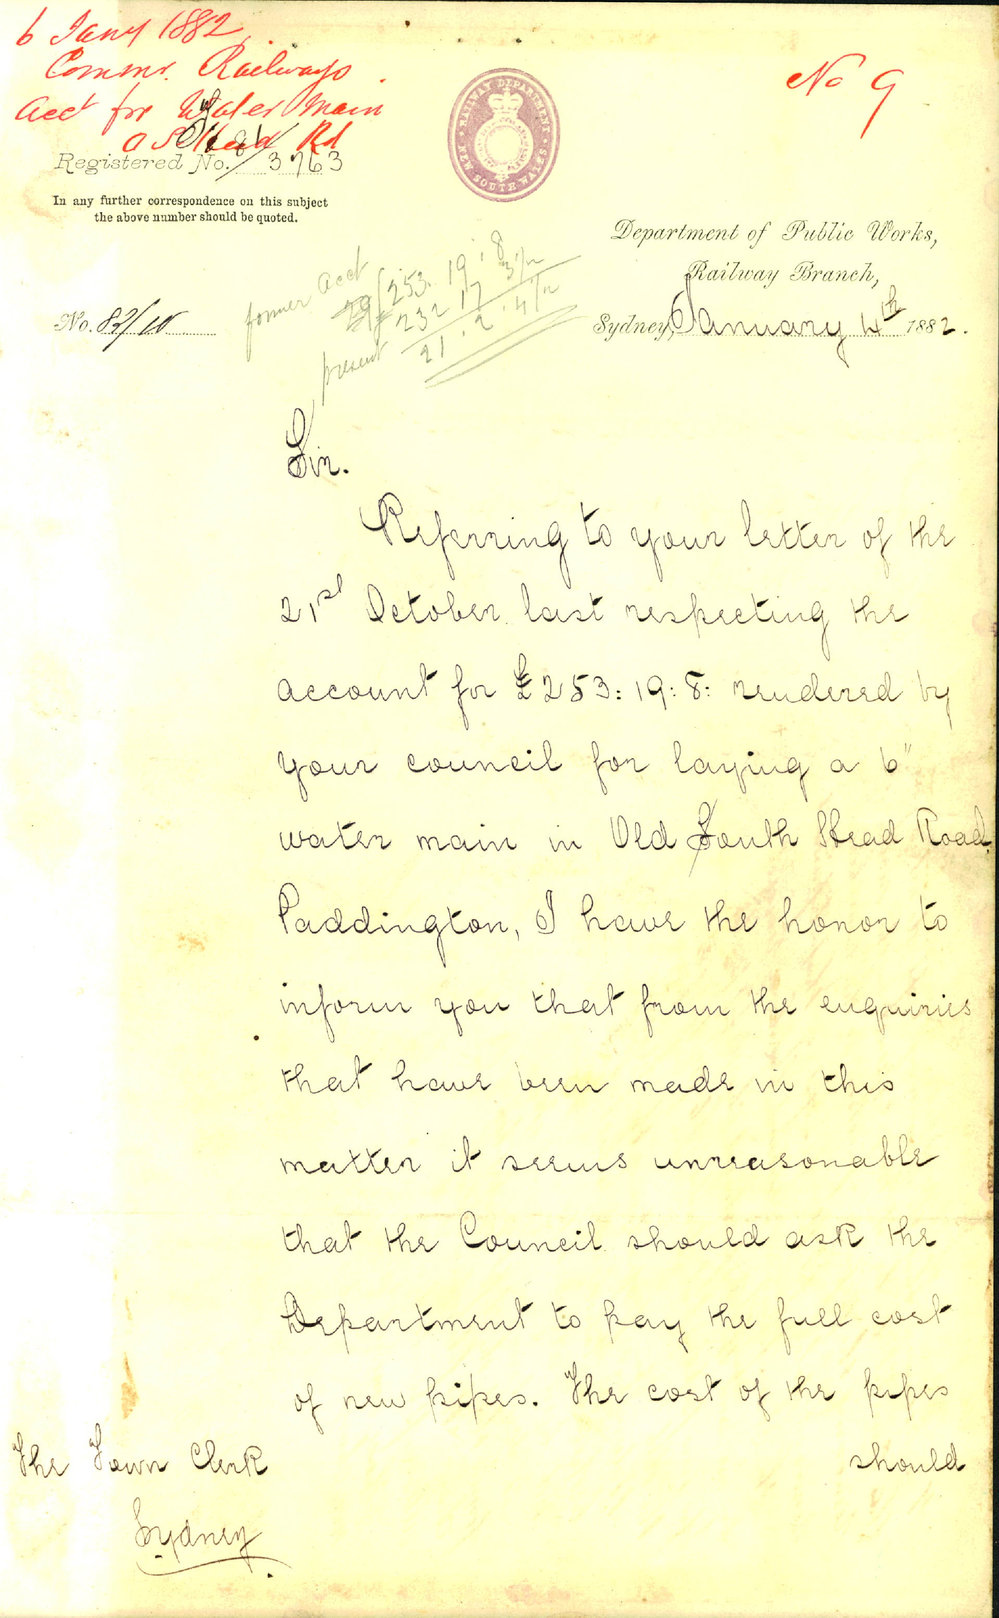 6 Jany 1882
Commr. Railways
Acct for Water Main
O S Head Rd
No 9
RAILWAY DEPARTMENT
NEW SOUTH WALES
Registered No. 3763
In any further correspondence on this subject
the above number should be quoted.
Department of Public Works,
Railway Branch,
No. 82/10
Sydney, January 4th 1882.
former acct 253. 19. 8
232 17 3
present 21. 2. 4
Sir.
Referring to your letter of the
21st October last respecting the
account for £253:19:8: rendered by
your council for laying a 6"
water main in Old South Head Road
Paddington, I have the honor to
inform you that from the enquiries
that have been made in this
matter it seems unreasonable
that the Council should ask the
Department to pay the full cost
of new pipes. The cost of the pipes
should
The Town Clerk
Sydney